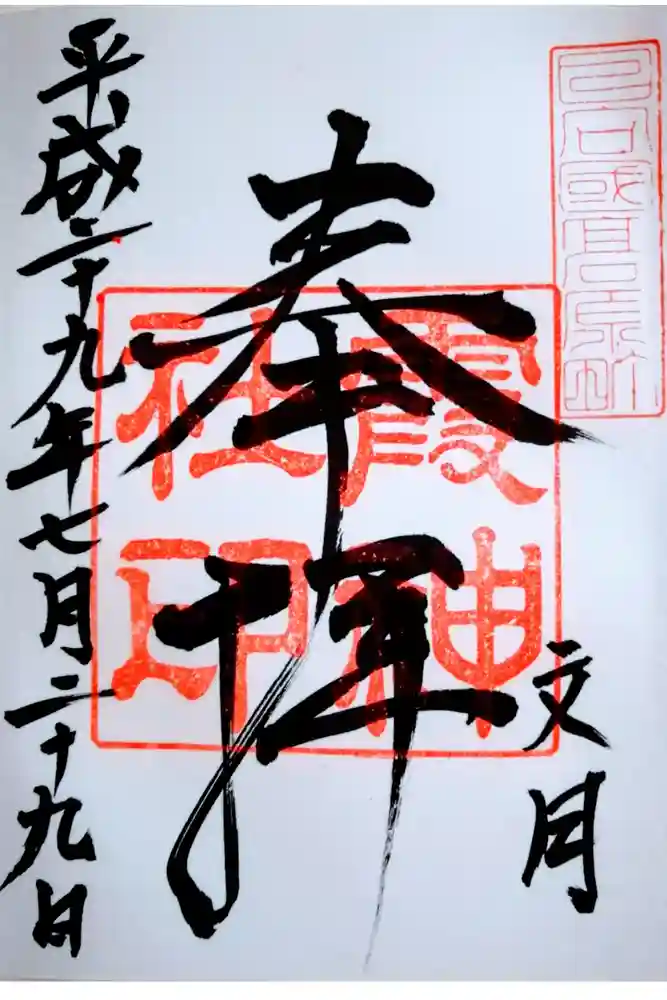 日向國高原
文月
奉拝
霞神
社印
平成二十九年七月二十九日